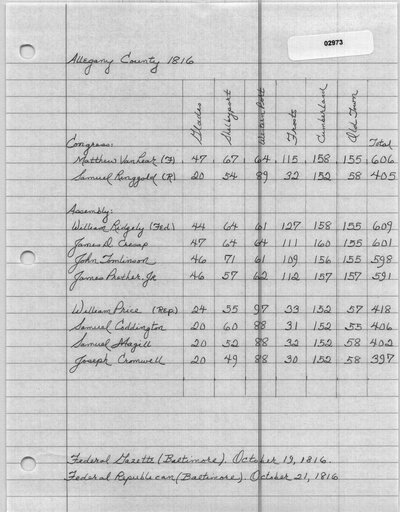 02973
Allegany County 1816
Glades Selbysport Western Port Frosts Cumberland Old Town Total
Congress:
Matthew VanLear (F) 47 67 64 115 158 155 606
Samuel Ringgold (R) 20 54 89 32 152 58 405
Assembly:
William Ridgely (Fed) 44 64 61 127 158 155 609
James D. Cresap 47 64 64 111 160 155 601
John Tomlinson 46 71 61 109 156 155 598
James Prather Jr 46 57 62 112 157 157 591
William Price (REP) 24 55 97 33 152 57 418
Samuel Coddington 20 60 88 31 152 55 406
Samuel Magill 20 52 88 32 152 58 402
Joseph Cromwell 20 49 88 30 152 58 397
Federal Gazette (Baltimore). October 19, 1816.
Federal Republican (Baltimore). October 21, 1816